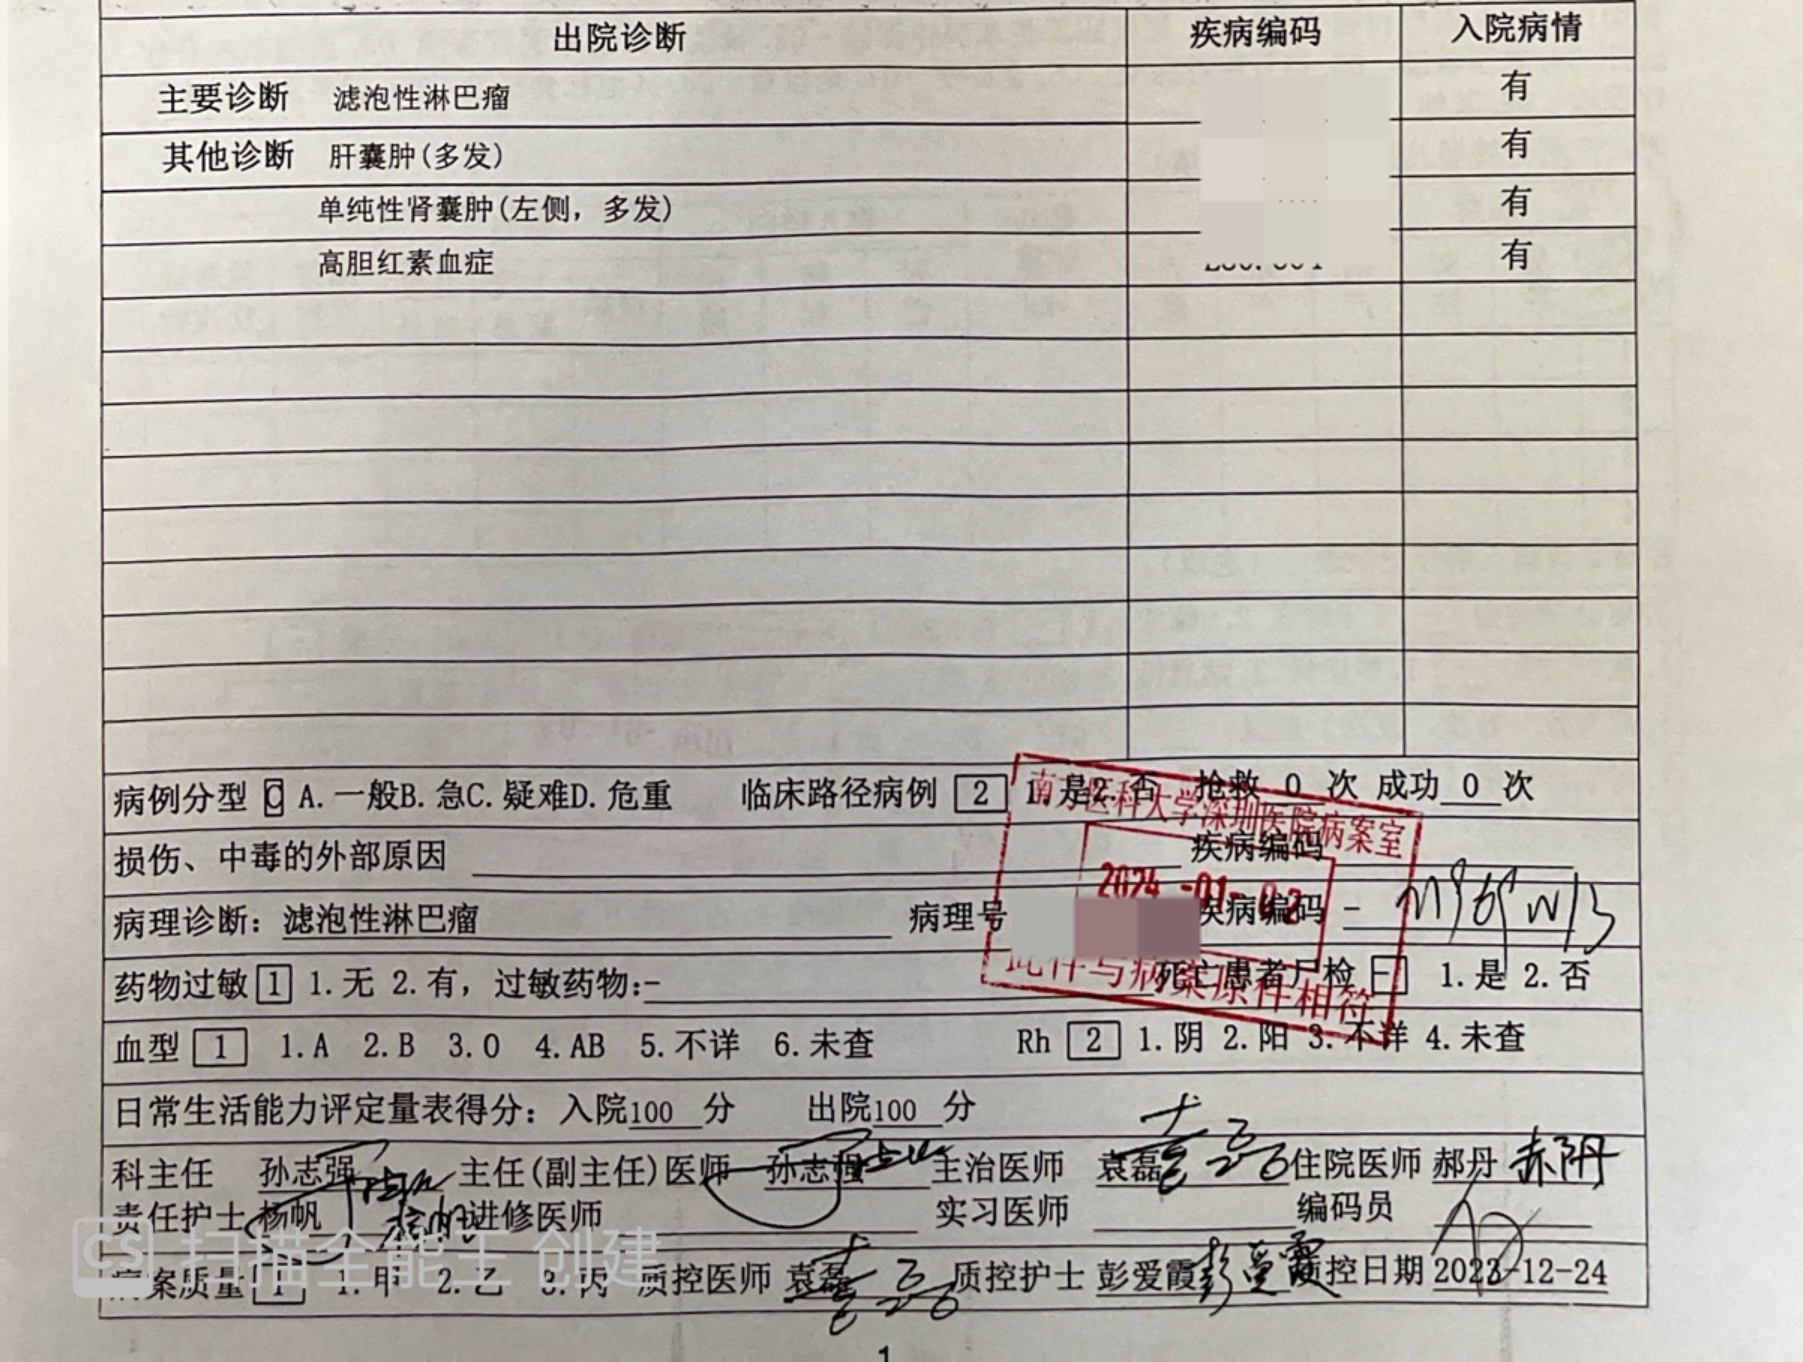 出院诊断 疾病编码 入院病情
主要诊断 滤泡性淋巴瘤 有
其他诊断 肝囊肿(多发) 有
单纯性肾囊肿(左侧，多发) 有
高胆红素血症 有
病例分型 C A.一般B.急C.疑难D.危重 临床路径病例 2 1.是2.否 抢救 0 次 成功 0 次
南方医科大学深圳医院病案室
损伤、中毒的外部原因 疾病编码
2024-01-02
病理诊断：滤泡性淋巴瘤 病理号 疾病编码 -
药物过敏 1 1.无 2.有，过敏药物:- 死亡患者尸检 - 1.是 2.否
此件与病案原件相符
血型 1 1.A 2.B 3.O 4.AB 5.不详 6.未查 Rh 2 1.阴 2.阳 3.不详 4.未查
日常生活能力评定量表得分：入院100 分 出院100 分
科主任 孙志强 主任(副主任)医师 孙志强 主治医师 袁磊 住院医师 郝丹 郝丹
责任护士 杨帆 杨帆 进修医师 实习医师 编码员
病案质量 1 1.甲 2.乙 3.丙 质控医师 袁磊 质控护士 彭爱霞 彭爱霞 质控日期 2023-12-24
CS 扫描全能王 创建
1